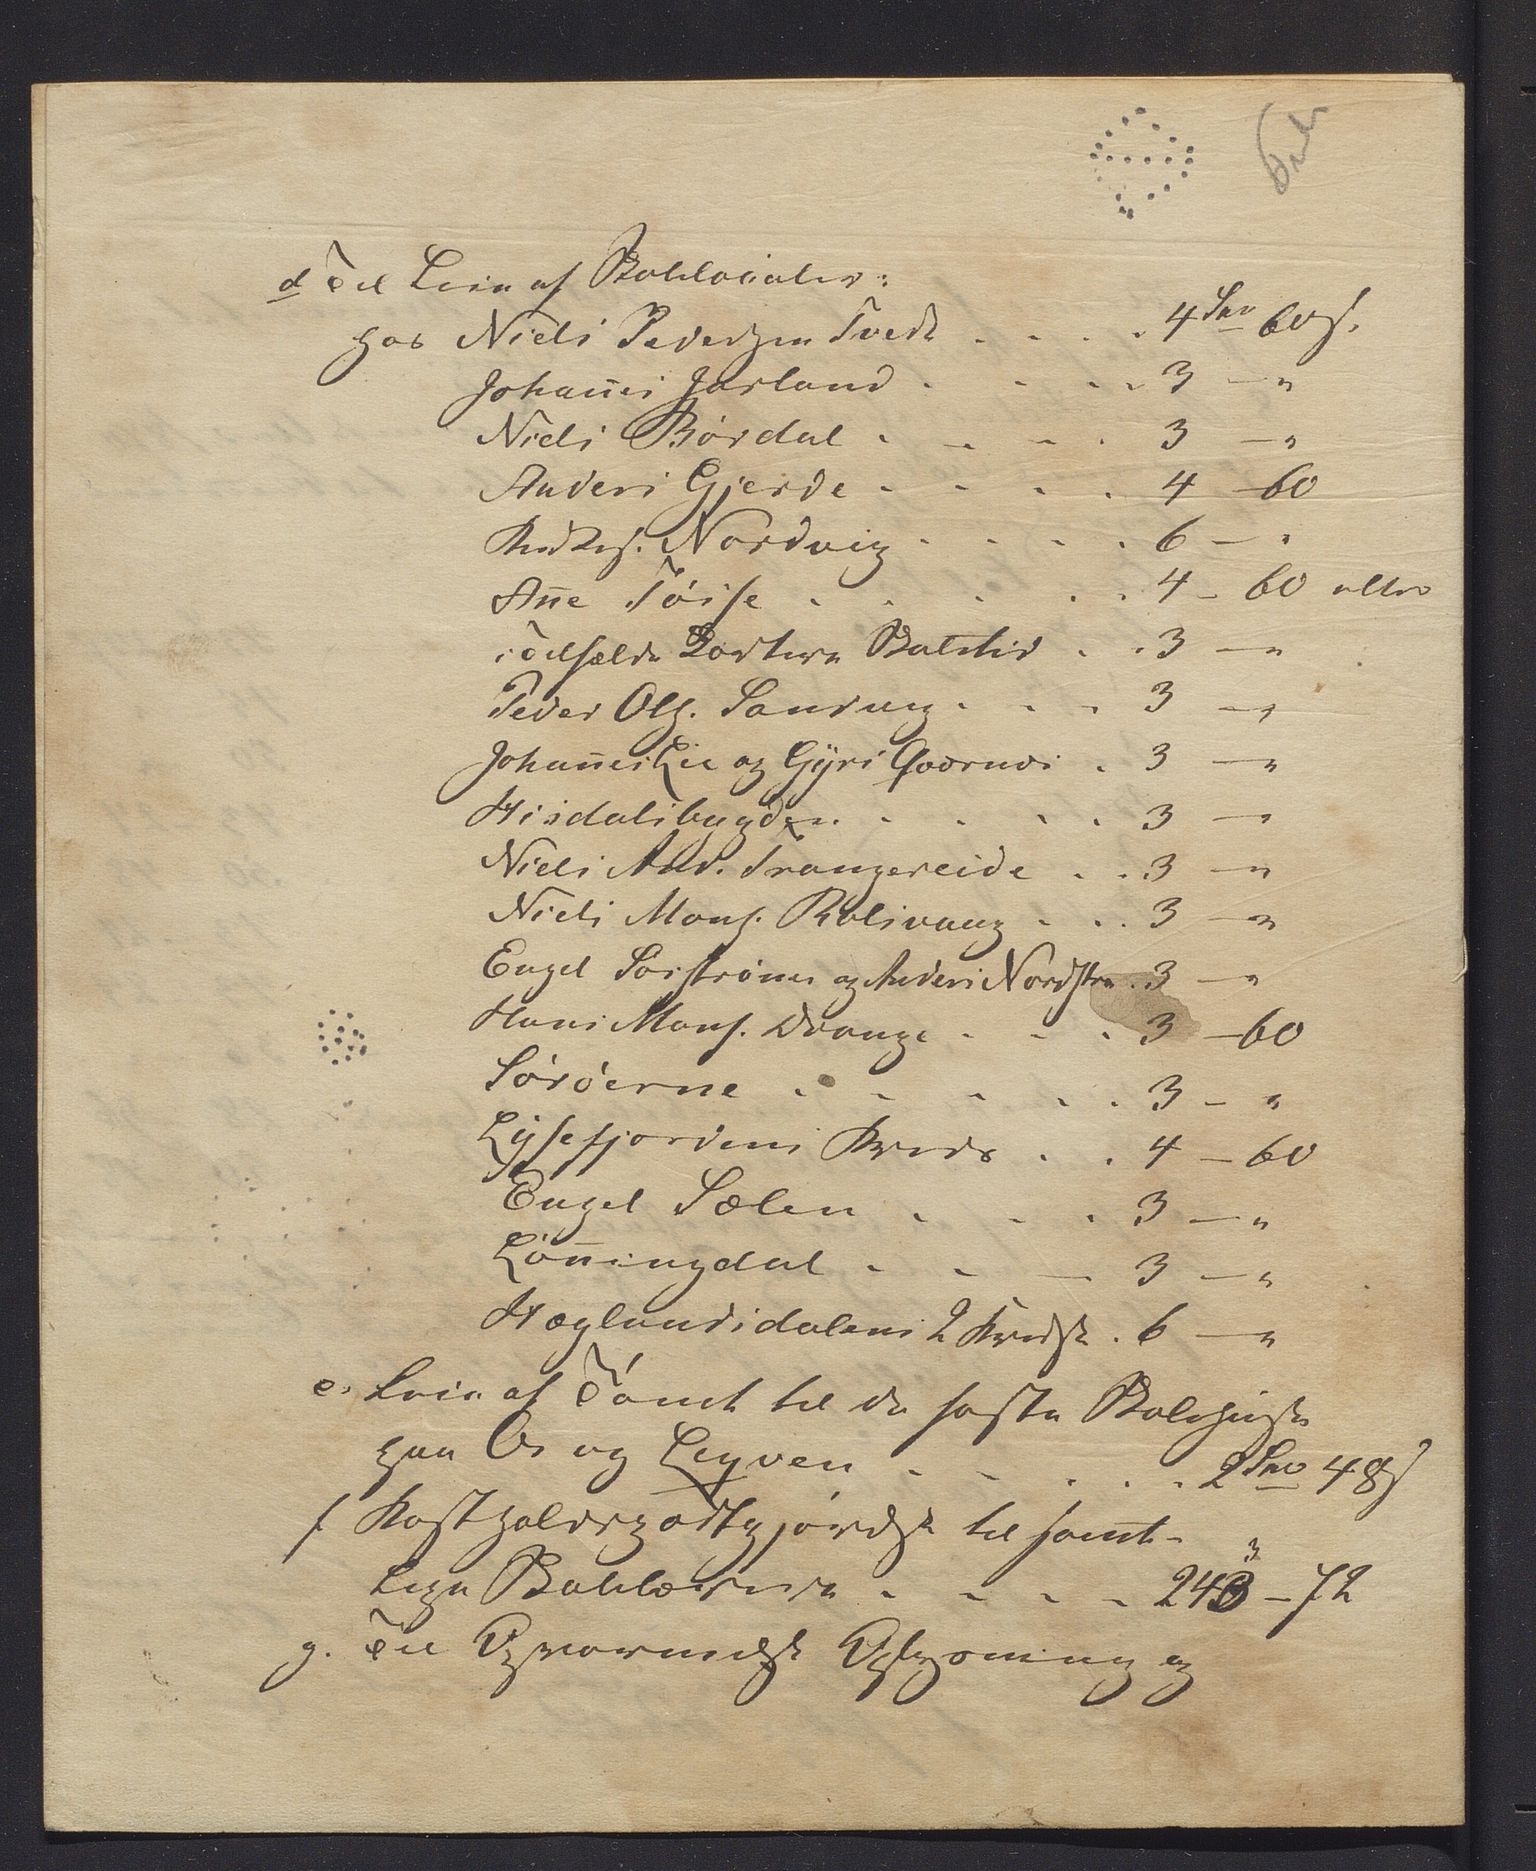 d Til Leie af Skolelocaler:
hos Niels Pedersen Tvedt . . . . 4 Spd 60 s.
Johannes Jarland . . . . 3 — "
Niels Børdal . . . . 3 — "
Anders Gjerde . . . . 4 — 60
Nordvig . . . . 6 — "
Añe Tøsse . . . . . 4 — 60 eller
i Tilfælde Kortere Skoletid . . 3 — "
Peder Ols. Sandvig . . . 3 — "
Johannes Lie og Gÿri Qværnøi . 3 — "
Hisdalsbygden . . . . 3 — "
Niels And. Trangereide . . 3 — "
Niels Mons. Rolisvaag . . . 3 — "
Engel Sørstrøno og Anders Nordstrø . 3 — "
Hans Mons. Drange . . . 3 — 60
Sørøerne . . . . . . 3 — "
Lysefjordens Kreds . . 4 — 60
Engel Sælen . . . 3 — "
Løñingdal . . — 3 — "
Hæglandsdalens 2 Kredse . 6 — "
e. Leie af Tomt til de faste Skolehuse
paa Os og Legven . . . . . 2 Spd 48 s
f Kostholdsgodtgjørelse til samt-
lige Skolelærere . . . . 243 — 72
g. Til Opvarmelse Opsyoning og